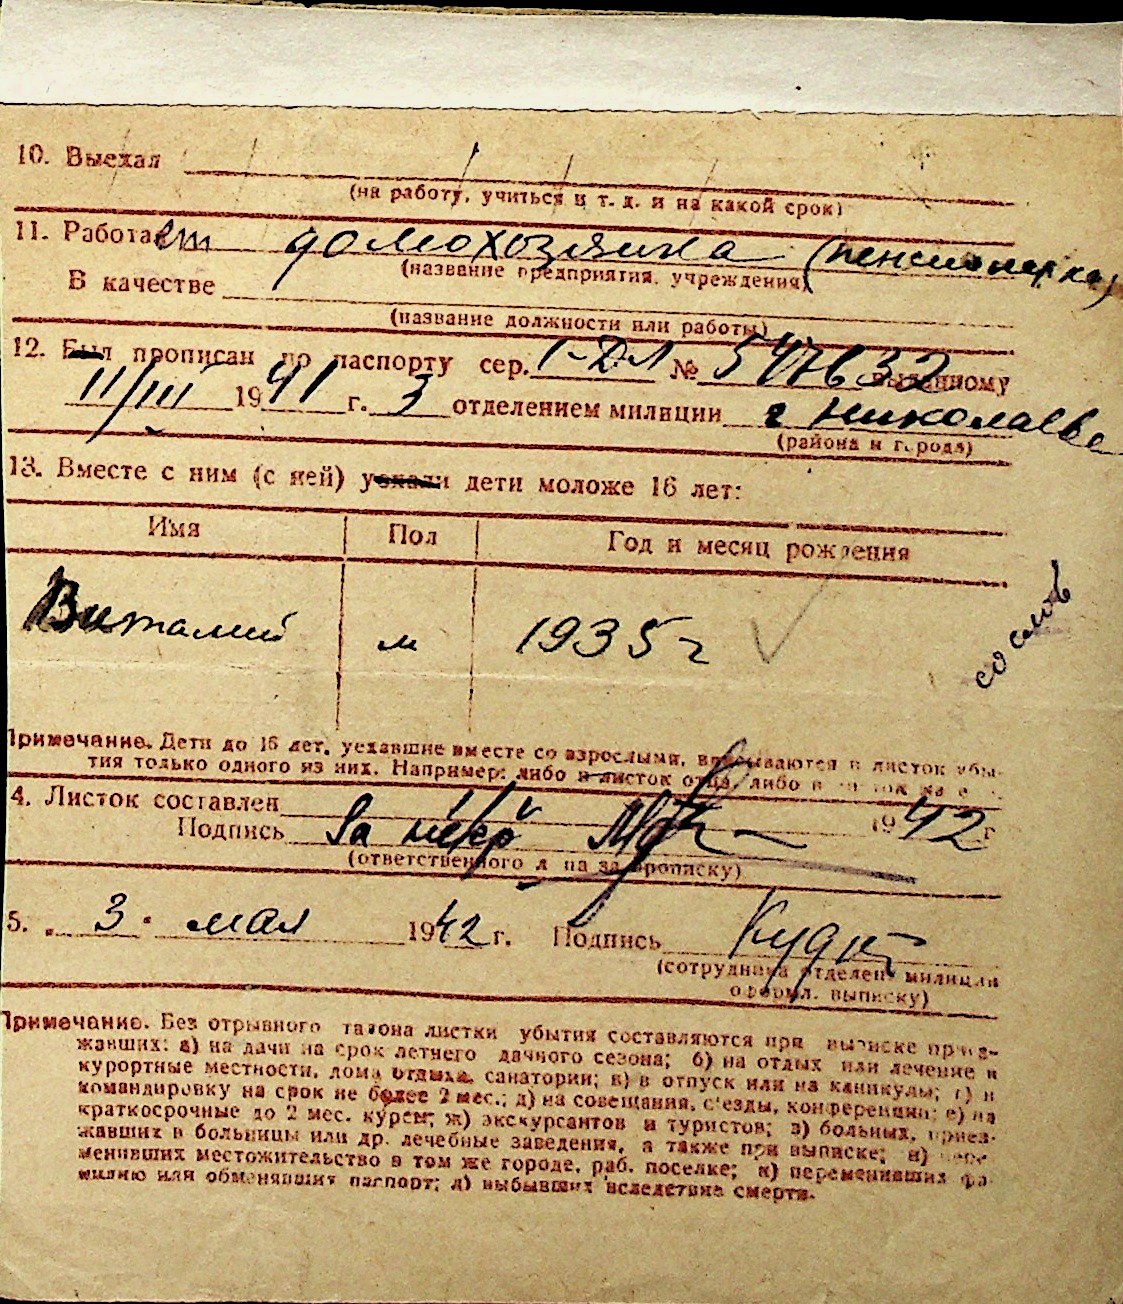 10. Выехал
(на работу, учиться и т. д. и на какой срок)
11. Работает домохозяйка (пенсионерка)
(название предприятия, учреждения)
В качестве
(название должности или работы)
12. Был прописан по паспорту сер. I-ДЛ № 547632 выданному
11/III 1941 г. 3 отделением милиции г Николаева
(района и города)
13. Вместе с ним (с ней) уехали дети моложе 16 лет:
Имя Пол Год и месяц рождения
Виталий м 1935 г
со слов
Примечание. Дети до 16 лет, уехавшие вместе со взрослыми, вписываются в листок убы-
тия только одного из них. Например: либо в листок отца, либо в
4. Листок составлен 1942 г
Подпись За
(ответственного лица за прописку)
5. 3 мая 1942 г. Подпись
(сотрудника отделен. милиции
оформл. выписку)
Примечание. Без отрывного талона листки убытия составляются при выписке приез-
жавших: а) на дачи на срок летнего дачного сезона; б) на отдых или лечение в
курортные местности, дома отдыха, санатории; в) в отпуск или на каникулы; г) в
командировку на срок не более 2 мес.; д) на совещания, съезды, конференции; е) на
краткосрочные до 2 мес. курсы; ж) экскурсантов и туристов; з) больных, приез-
жавших в больницы или др. лечебные заведения, а также при выписке; и) пере-
менивших местожительство в том же городе, раб. поселке; к) переменивших фа-
милию или обменявших паспорт; л) выбывших вследствие смерти.